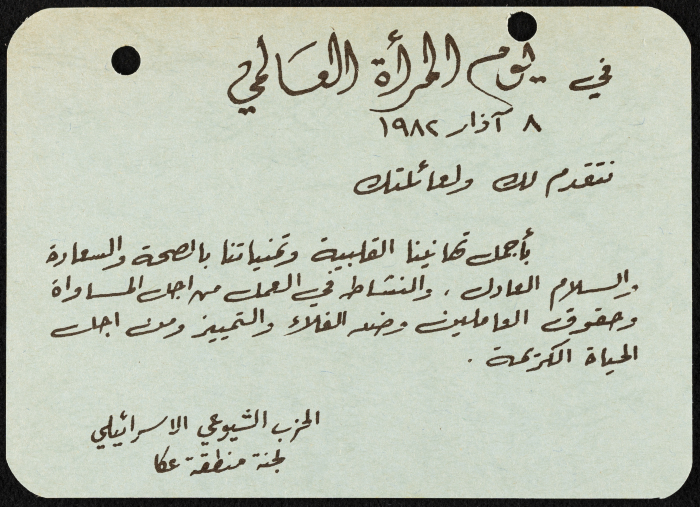 في يوم المرأة العالمي
٨ آذار ١٩٨٢
نتقدم لك ولعائلتك
بأجمل تهانينا القلبية وتمنياتنا بالصحة والسعادة
والسلام العادل، والنشاط في العمل من اجل المساواة
وحقوق العاملين وضد الغلاء والتمييز ومن اجل
الحياة الكريمة .
الحزب الشيوعي الاسرائيلي
لجنة منطقة عكا